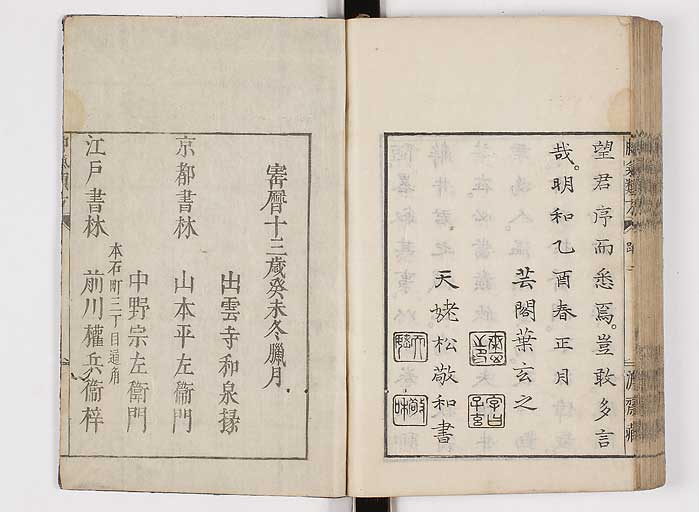 望君序而悉焉。豈敢多言
哉。明和乙酉春正月
芸閣葉玄之
天姥松敬和書
寳曆十三歳癸未冬臘月
出雲寺和泉掾
京都書林 山本平左衞門
中野宗左衞門
本石町三丁目
江戸書林 前川權兵衞梓